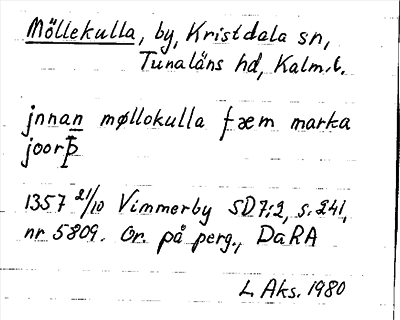 Möllekulla, by, Kristdala sn,
Tunaläns hd, Kalm.l.
jnnan møllokulla fæm marka
joorþ
1357 21/10 Vimmerby SD7:2, s. 241,
nr 5809. Or. på perg., DaRA
L Aks. 1980